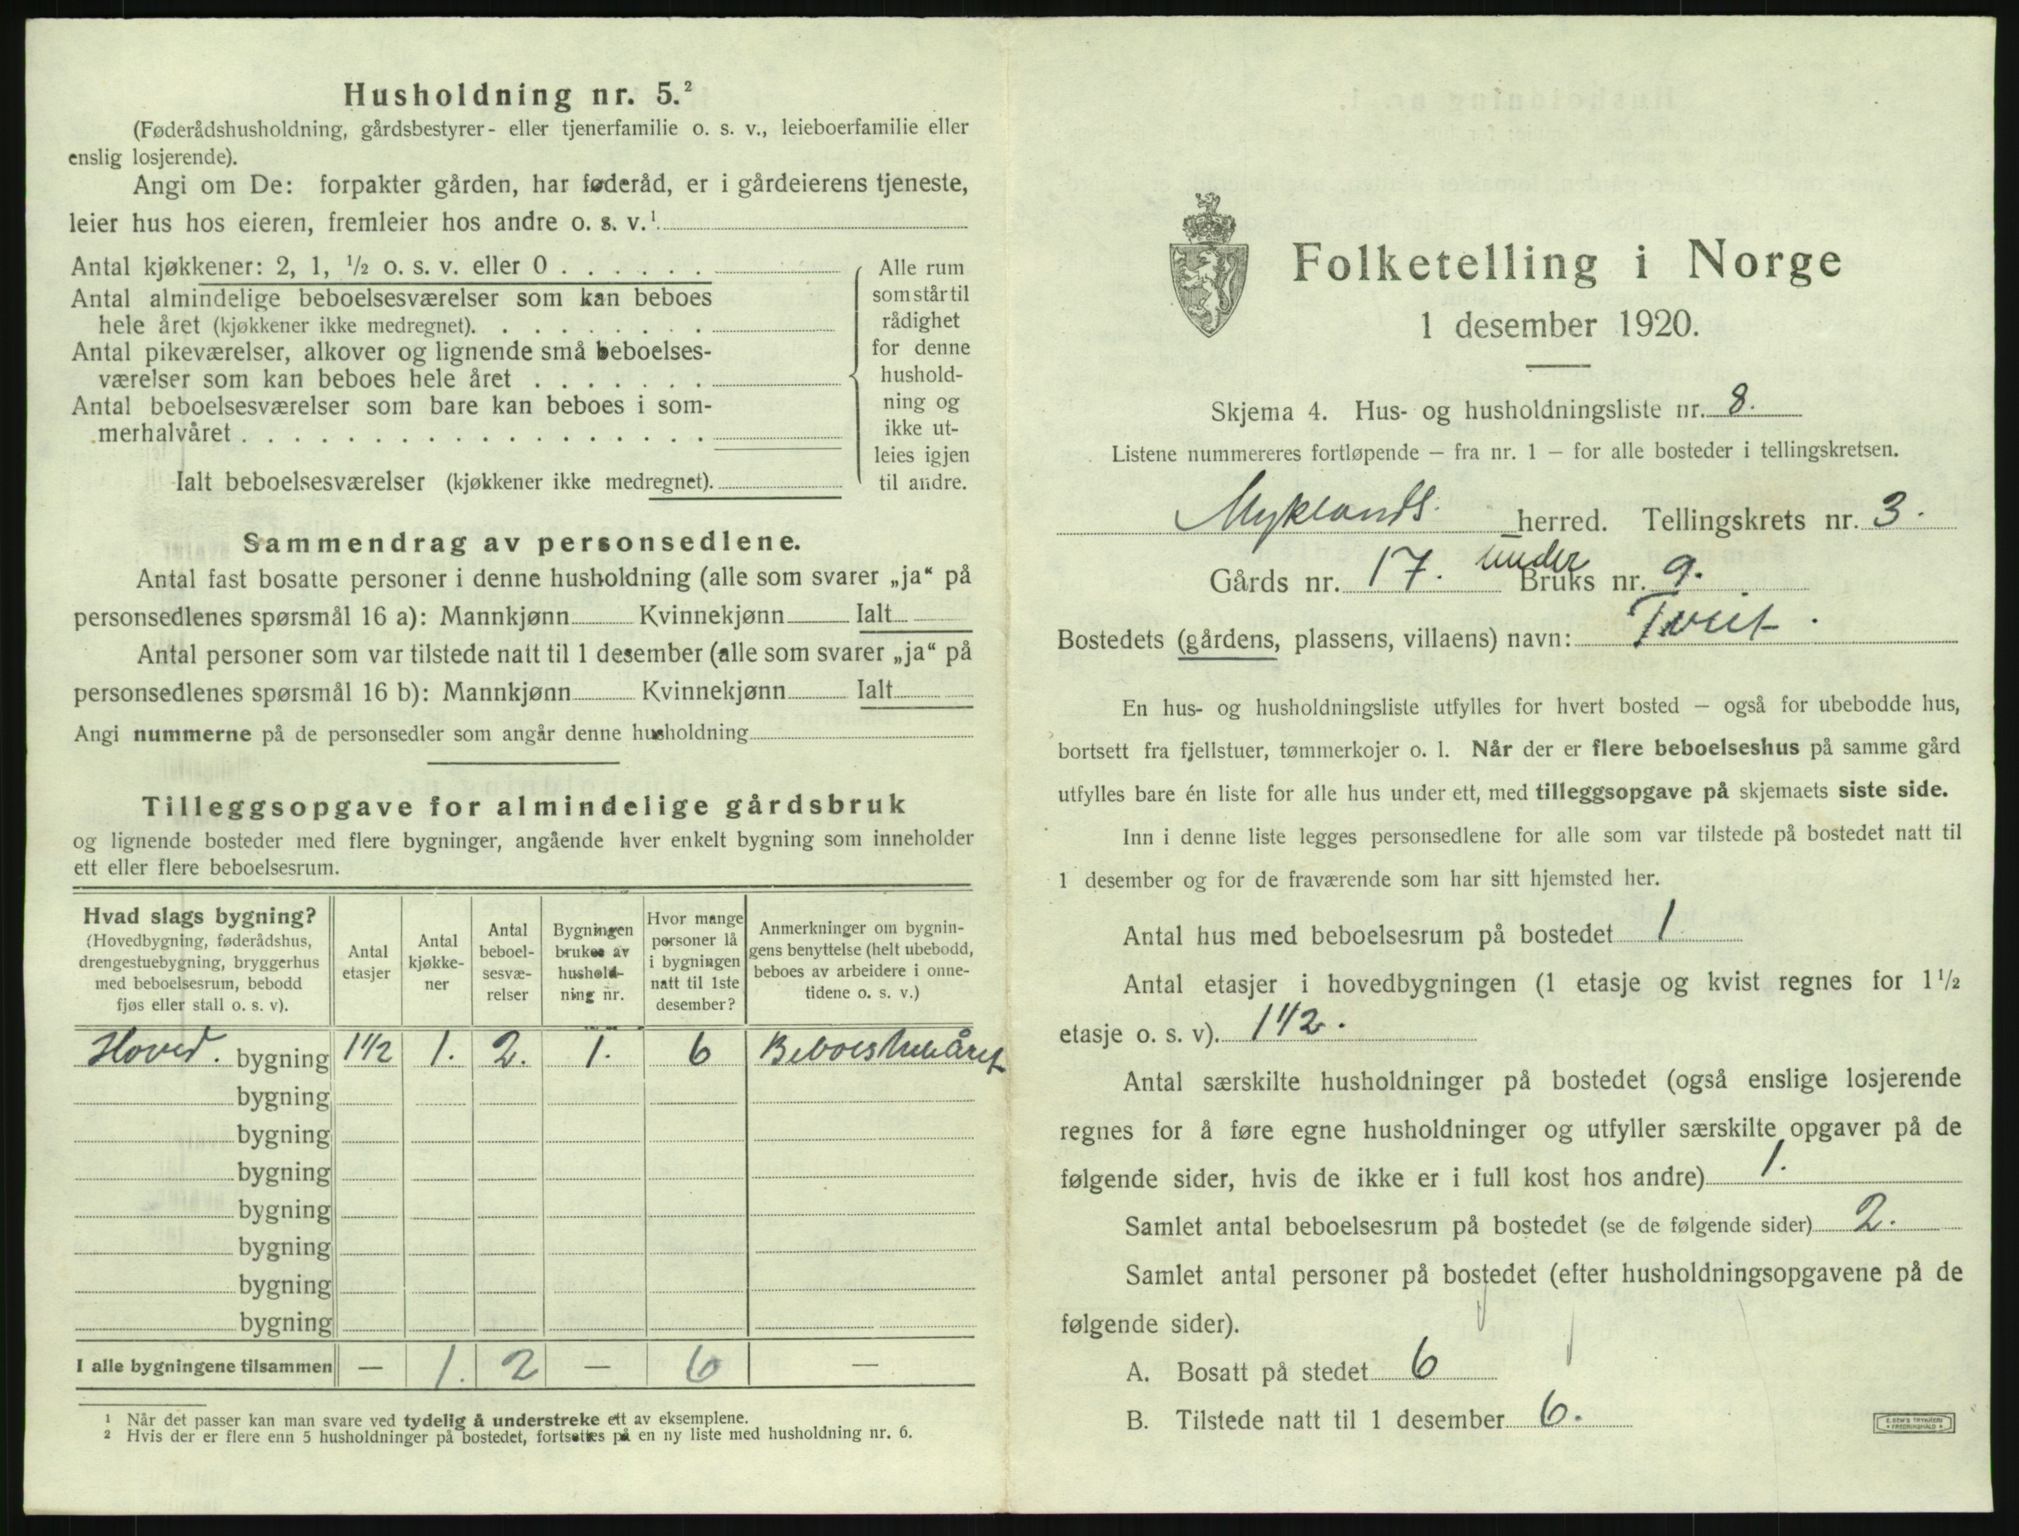 Husholdning nr. 5.²
(Føderådshusholdning, gårdsbestyrer- eller tjenerfamilie o. s. v., leieboerfamilie eller
enslig losjerende).
Angi om De: forpakter gården, har føderåd, er i gårdeierens tjeneste,
leier hus hos eieren, fremleier hos andre o. s. v.¹
Antal kjøkkener: 2, 1, ½ o. s. v. eller 0 . . . . . .
Antal almindelige beboelsesværelser som kan beboes
hele året (kjøkkener ikke medregnet). . . . . . . . .
Antal pikeværelser, alkover og lignende små beboelses-
værelser som kan beboes hele året . . . . . . .
Antal beboelsesværelser som bare kan beboes i som-
merhalvåret . . . . . . . . . . . . . . . . . .
Ialt beboelsesværelser (kjøkkener ikke medregnet).
Alle rum
som står til
rådighet
for denne
hushold-
ning og
ikke ut-
leies igjen
til andre.
Sammendrag av personsedlene.
Antal fast bosatte personer i denne husholdning (alle som svarer „ja“ på
personsedlenes spørsmål 16 a): Mannkjønn Kvinnekjønn Ialt
Antal personer som var tilstede natt til 1 desember (alle som svarer „ja“ på
personsedlenes spørsmål 16 b): Mannkjønn Kvinnekjønn Ialt
Angi nummerne på de personsedler som angår denne husholdning
Tilleggsopgave for almindelige gårdsbruk
og lignende bosteder med flere bygninger, angående hver enkelt bygning som inneholder
ett eller flere beboelsesrum.
Hvad slags bygning?
(Hovedbygning, føderådshus,
drengestuebygning, bryggerhus
med beboelsesrum, bebodd
fjøs eller stall o. s. v).
Antal
etasjer
Antal
kjøkke-
ner
Antal
beboel-
sesvæ-
relser
Bygningen
brukes av
hushold-
ning nr.
Hvor mange
personer lå
i bygningen
natt til 1ste
desember?
Anmerkninger om bygnin-
gens benyttelse (helt ubebodd,
beboes av arbeidere i onne-
tidene o. s. v.)
Hoved. bygning 1 1/2 1. 2. 1. 6 Beboes hele året
bygning
bygning
bygning
bygning
bygning
bygning
bygning
I alle bygningene tilsammen — 1. 2 — 6 —
¹ Når det passer kan man svare ved tydelig å understreke ett av eksemplene.
² Hvis der er flere enn 5 husholdninger på bostedet, fortsettes på en ny liste med husholdning nr. 6.
Folketelling i Norge
1 desember 1920.
Skjema 4. Hus- og husholdningsliste nr. 8.
Listene nummereres fortløpende — fra nr. 1 — for alle bosteder i tellingskretsen.
Myklands. herred. Tellingskrets nr. 3.
Gårds nr. 17. under Bruks nr. 9.
Bostedets (gårdens, plassens, villaens) navn: Tveit.
En hus- og husholdningsliste utfylles for hvert bosted — også for ubebodde hus,
bortsett fra fjellstuer, tømmerkojer o. l. Når der er flere beboelseshus på samme gård
utfylles bare én liste for alle hus under ett, med tilleggsopgave på skjemaets siste side.
Inn i denne liste legges personsedlene for alle som var tilstede på bostedet natt til
1 desember og for de fraværende som har sitt hjemsted her.
Antal hus med beboelsesrum på bostedet 1.
Antal etasjer i hovedbygningen (1 etasje og kvist regnes for 1½
etasje o. s. v). 1 1/2.
Antal særskilte husholdninger på bostedet (også enslige losjerende
regnes for å føre egne husholdninger og utfyller særskilte opgaver på de
følgende sider, hvis de ikke er i full kost hos andre) 1.
Samlet antal beboelsesrum på bostedet (se de følgende sider) 2.
Samlet antal personer på bostedet (efter husholdningsopgavene på de
følgende sider).
A. Bosatt på stedet 6
B. Tilstede natt til 1 desember 6.
E. SEM'S TRYKKERI
FREDRIKSHALD